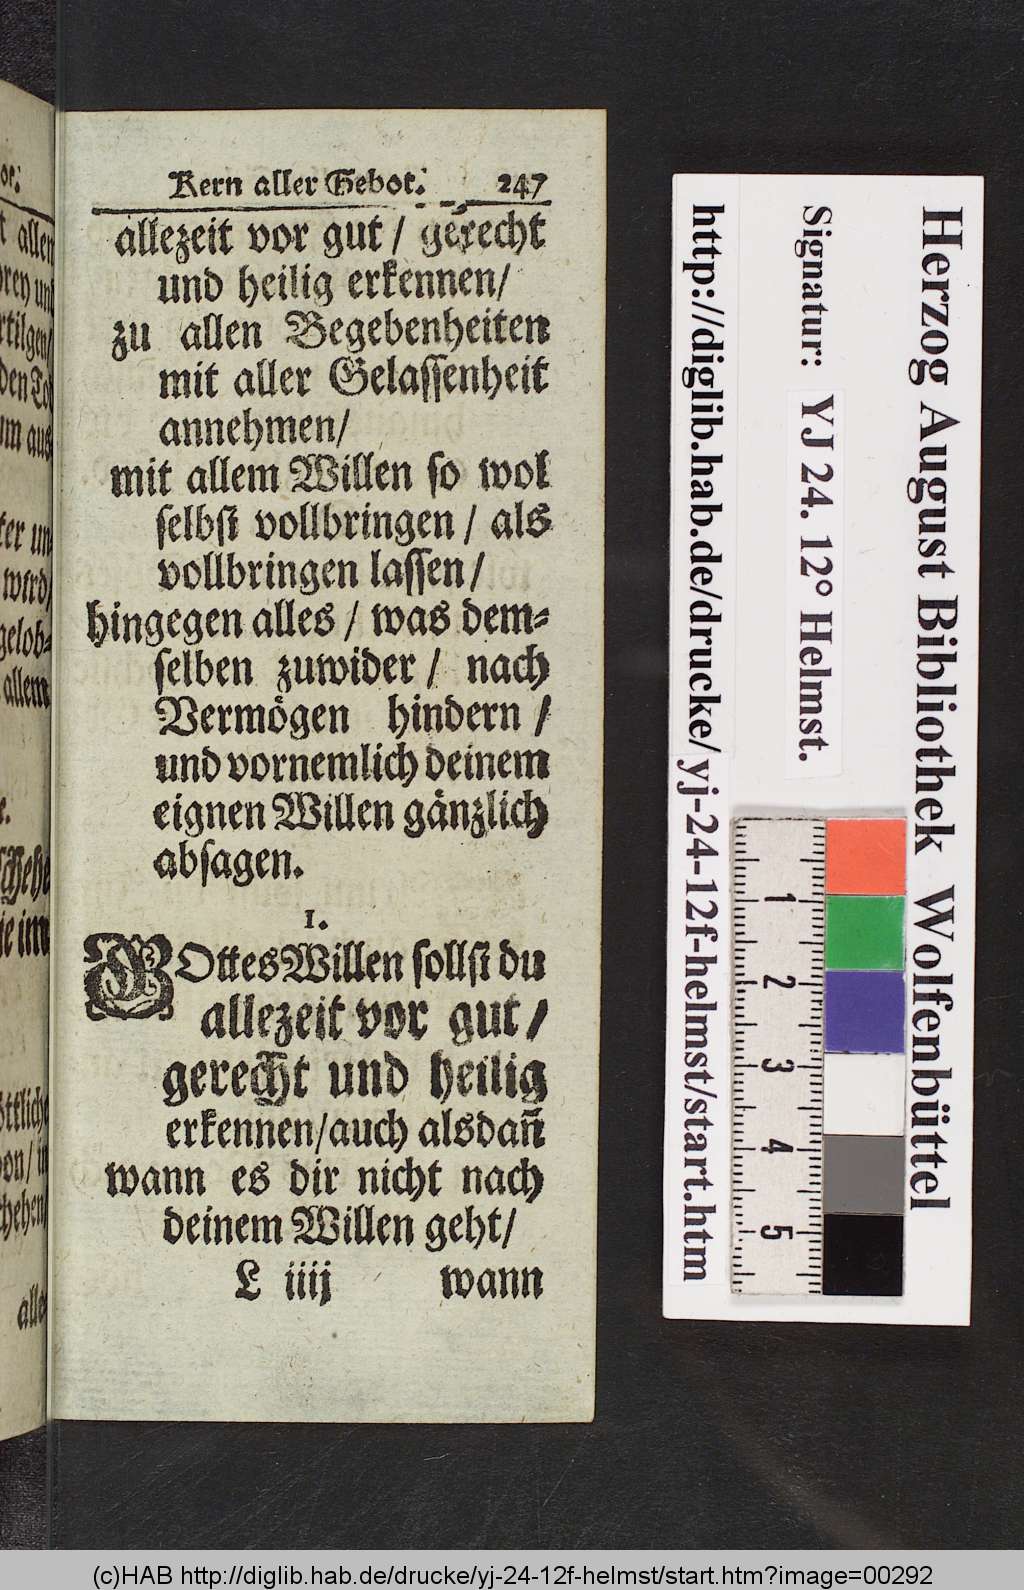 Kern aller Gebot. 247
allezeit vor gut / gerecht
und heilig erkennen/
zu allen Begebenheiten
mit aller Gelassenheit
annehmen/
mit allem Willen so wol
selbst vollbringen / als
vollbringen lassen /
hingegen alles / was dem-
selben zuwider / nach
Vermögen hindern /
und vornemlich deinem
eignen Willen gänzlich
absagen.
1.
GOttes Willen sollst du
allezeit vor gut /
gerecht und heilig
erkennen/auch alsdañ
wann es dir nicht nach
deinem Willen geht/
L iiij wann
t allen
tilgen/
den Tod
um aus
wird/
gelob-
allem
schehe
alle
Herzog August Bibliothek Wolfenbüttel
Signatur: YJ 24. 12° Helmst.
http://diglib.hab.de/drucke/yj-24-12f-helmst/start.htm
1
2
3
4
5
(c)HAB http://diglib.hab.de/drucke/yj-24-12f-helmst/start.htm?image=00292